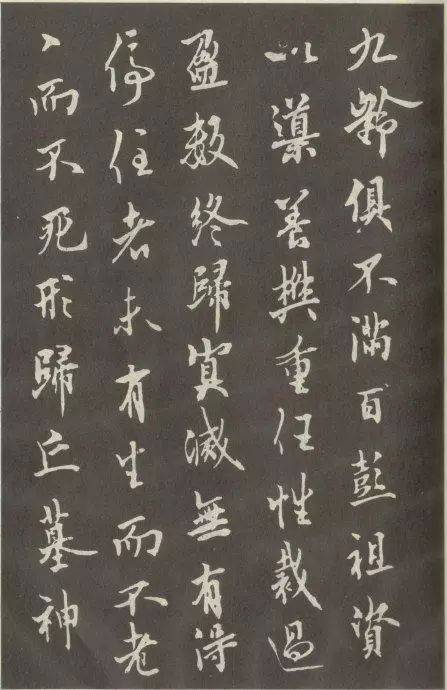 九齡俱不滿百彭祖資
以導善樊重任性裁過
盈數終歸冥滅無有得
停住者未有生而不老
〻而不死形歸丘墓神